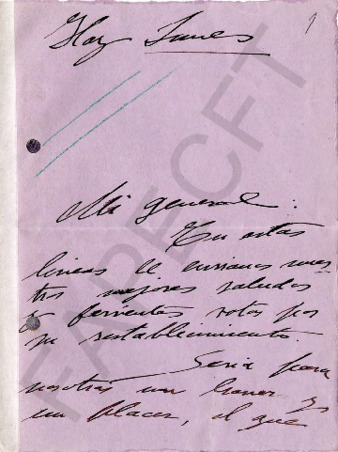 Hoy Lunes
9
Mi general:
En estas
lineas le enviamos nues
tros mejores saludos
y fervientes votos por
su restablecimiento.
Seria para
nosotras un honor y
un placer, el que
FARECFT